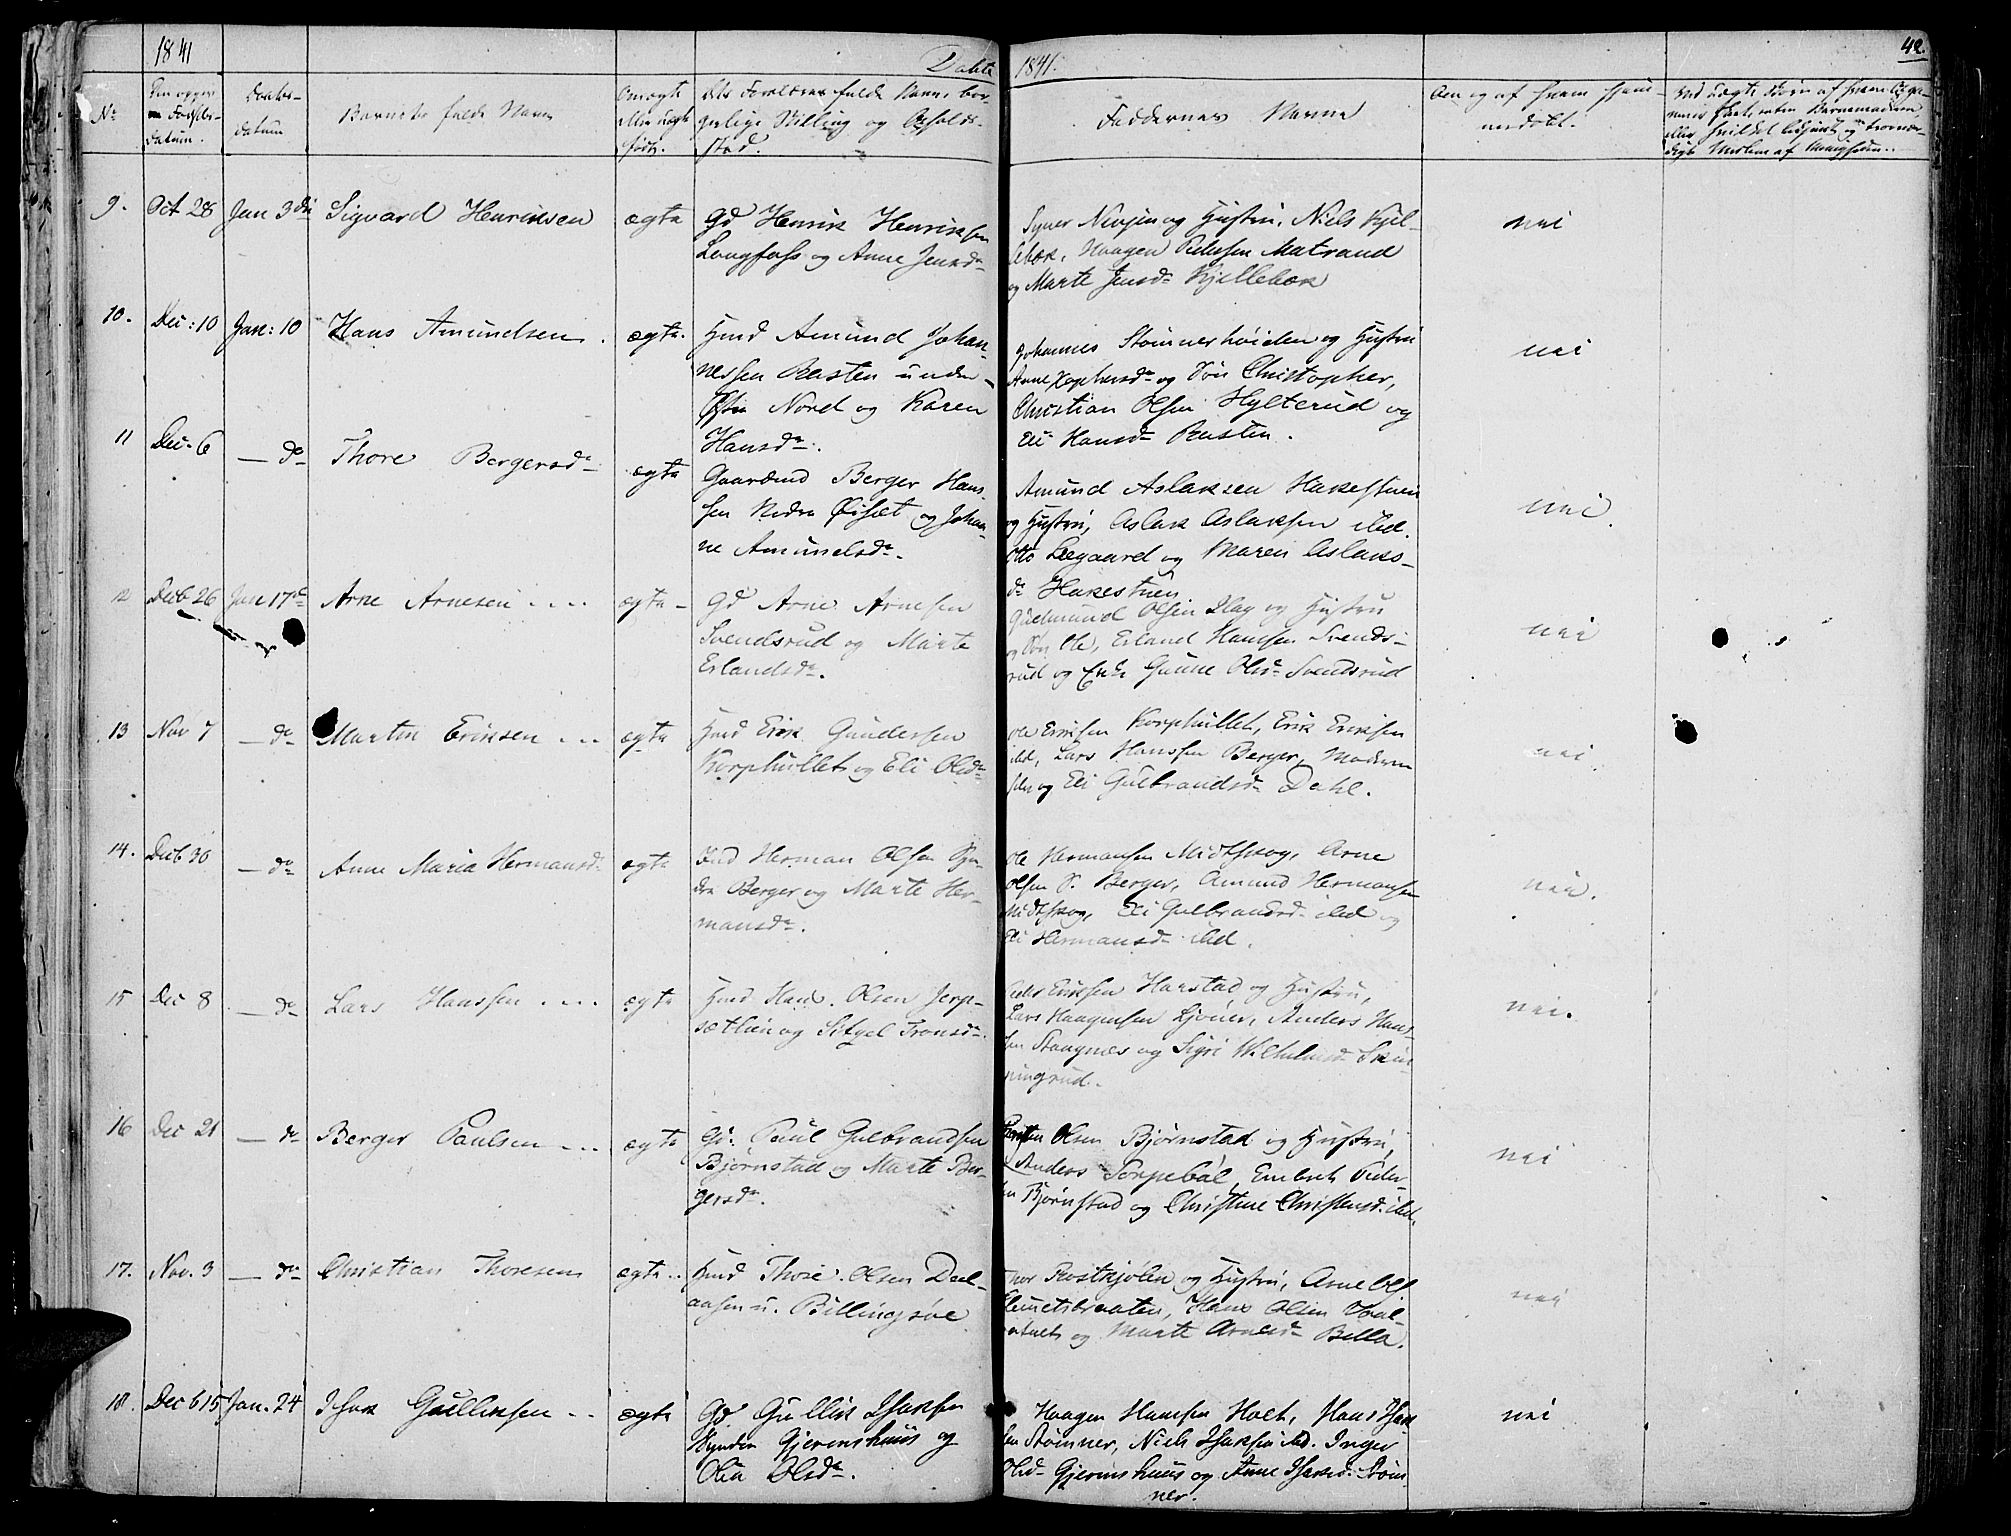 1841
Døbte
1841.
42.
No
Den opgivne Fødsels-
datum.
Daabs-
datum
Barnets fulde Navn
Om ægte
eller uægte
født.
Forældrenes fulde Navne, bor-
gerlige Stilling og Opholds-
sted.
Faddernes Navne
Om og af hvem hjem-
medøbt.
9. Oct 28 Jan 3die Sigvard Henriksen ægte
Gd Henrik Henriksen
Langfoss og Anne Jensdr
og Hustru, Niels Kjel-
lebæk, Haagen Pedersen Matrand
og Marte Jensdr Kjellebæk
nei
10. Dec: 10 Jan: 10 Hans Amundsen. ægte.
Hmd Amund Johan-
nessen Rasten under
Østre Nord og Karen
Hansdr.
Johannes Stømnerhøiden og Hustru
Anne og Søn Christopher,
Christian Olsen Hylterud og
Eli Hansdr Rasten.
nei
11 Dec. 6 — do Thore Bergersdr ægte
Gaardmd Berger Han-
sen Nedre Øiset og Johan-
ne Amundsdr.
Amund Aslaksen Hakestuen
og Hustru, Aslak Aslaksen ibid.
Otto Leegaard og Maren Aslaks-
dr Hakestuen
nei.
12 Decb 26 Jan 17de Arne Arnesen ægte
Gd Arne Arnesen
Svendsrud og Marte
Erlandsdr.
Gudmund Olsen og Hustru
og Søn Ole, Erland Hansen Svends-
rud og Enke Gunne Olsdr Svendsrud
nei
13 Nov 7 — do Martin Eriksen ægte
Hmd Erik Gundersen
Korphullet og Eli Olsdr
Ole Eriksen Korphullet, Erik Eriksen
ibid, Lars Hanssen Berger, Moderen
selv og Eli Gulbrandsdr Dahl.
nei.
14. Decb 30 — do Anne Maria Hermansdr ægte
Ind Herman Olsen Søn-
dre Berger og Marte Her-
mansdr.
Ole Hermansen Midtskog, Arne
Olsen S. Berger, Amund Hermansen
Midtskog, Eli Gulbrandsdr ibid og
Eli Hermansdr ibid.
nei.
15 Dec 8 — do Lars Hanssen ægte
Hmd Hans Olsen Jerp-
sætlien og Sitzel Tronsdr.
Eriksen Harstad og Hustru,
Lars Haagensen Ljøner, Anders Han-
sen Skaugnæs og Sigri Wilhelmsdr
ningrud.
nei.
16 Dec 21 — do Berger Paulsen ægte
Gd. Paul Gulbrandsen
Bjørnstad og Marte Ber-
gersdr.
Christen Olsen Bjørnstad og Hustru,
Anders Torpebøl, Embret Peder-
sen Bjørnstad og Christine Christensdr. ibid.
nei
17. Nov. 3 — do Christian Thoresen ægte
Hmd Thore Olsen Dael-
aasen u. Billingsøe
Thor Rostkjølen og Hustru, Arne Ols
Klemetsbraaten, Hans Olsen
og Marte Arnesdr Bella.
nei
18. Decb 15 Jan. 24 Isak Gulliksen ægte
Gd. Gullik Isaksen
Søndre Gjerinshuus og
Olia Olsdr.
Haagen Hansen Holt, Hans Isak-
sen Stømner, Niels Isaksen ibd. Inger
Olsdr Gjerinshuus og Anne Isaksdr. Støm-
ner.
nei